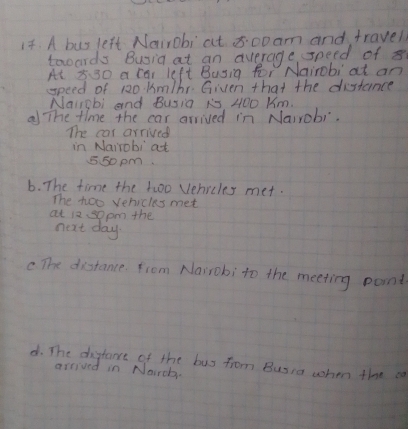 17. A bus left Nairobi at 8.00am and travell
towards Busia at an average speed of 8
At 8.30 a car left Busia for Nairobi at an
speed of 120 km/hr. Given that the distance
Nairobi and Busia is 400 km.
a) The time the car arrived in Nairobi.
The car arrived
in Nairobi at
5.50pm.
b. The time the two vehicles met.
The two vehicles met
at 12.50pm the
next day.
c. The distance from Nairobi to the meeting point
d. The distance of the bus from Busia when the ca
arrived in Nairobi.